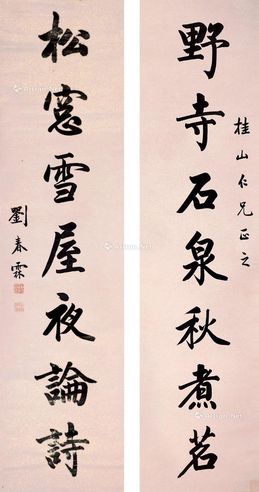 野寺石泉秋煮茗
桂山仁兄正之
松窻雪屋夜論詩
劉春霖